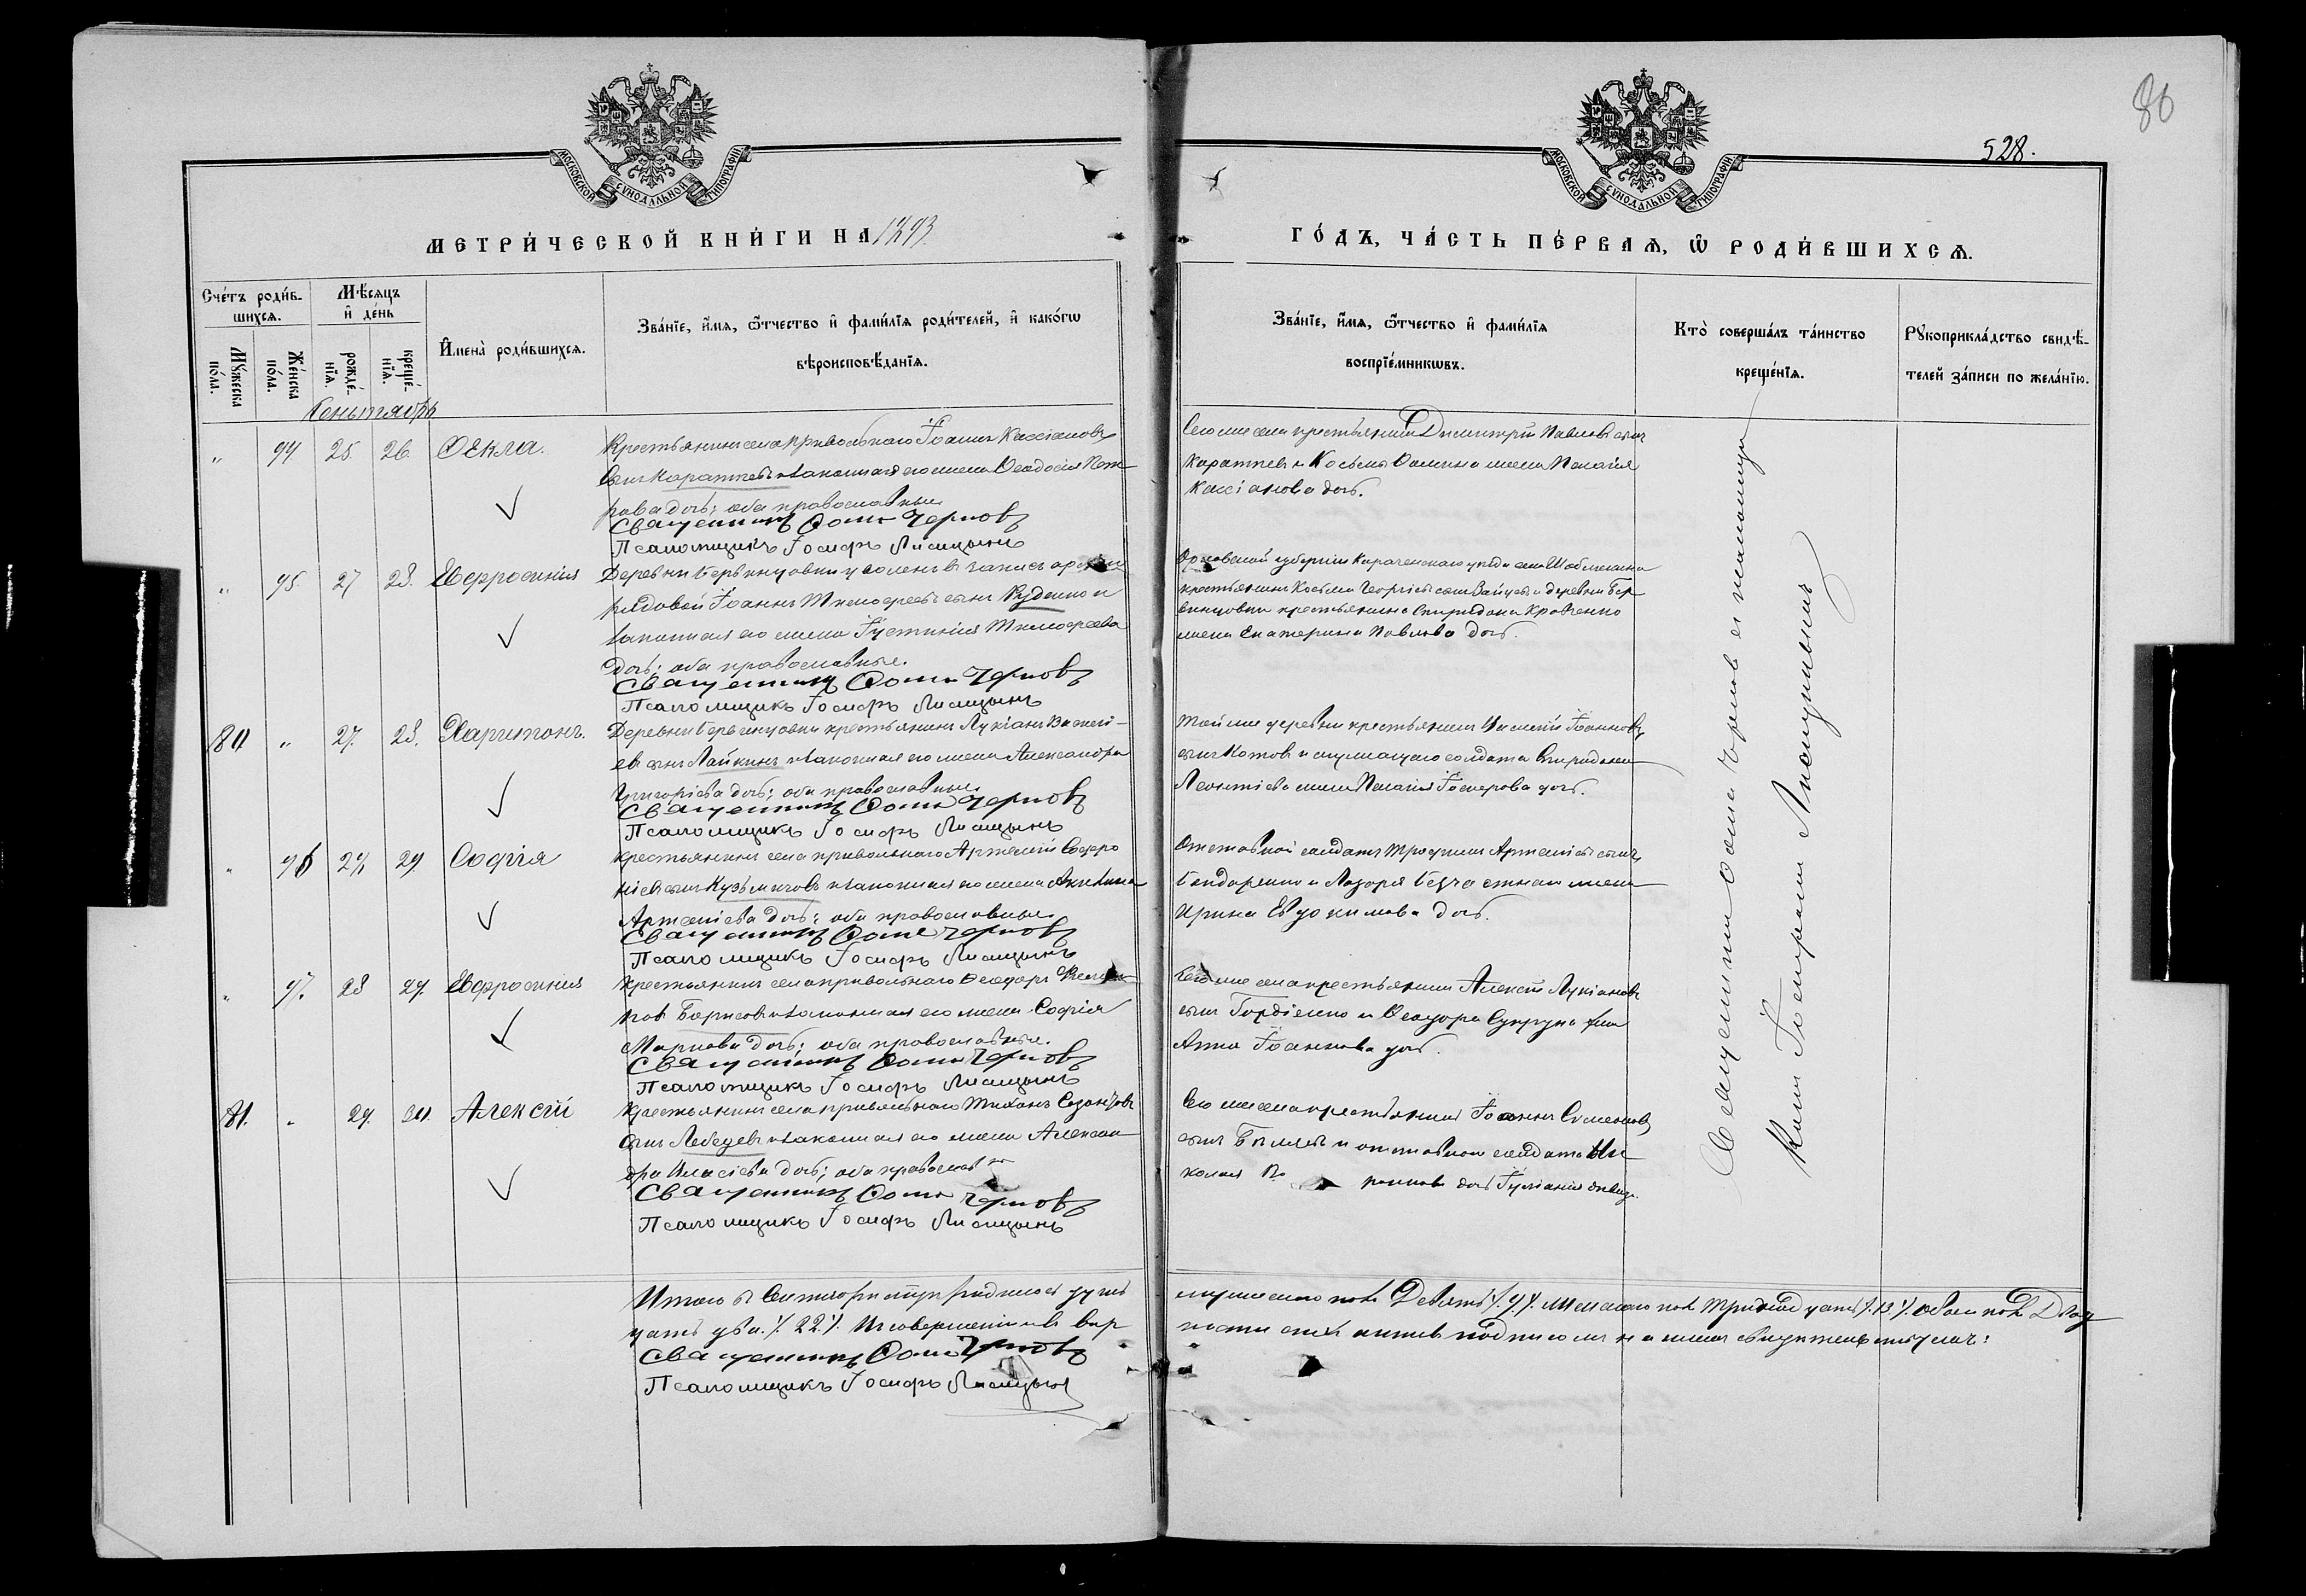 86
528.
МОСКОВСКОЙ СУНОДАЛЬНОЙ ТИПОГРАФІИ
МОСКОВСКОЙ СУНОДАЛЬНОЙ ТИПОГРАФІИ
МЕТРИ́ЧЕСКОЙ КНИ́ГИ НА 1893.
ГО́ДЪ, ЧА́СТЬ ПЕ́РВАѦ, Ѡ РОДИ́ВШИХСѦ.
Сче́тъ роди́в-
шихсѧ.
Мꙋ́жеска по́ла.
Же́нска по́ла.
Мѣ́сѧцъ
и҆ де́нь
рожде́-
нїѧ.
креще́-
нїѧ.
И҆мена̀ роди́вшихсѧ.
Зва́нїе, и҆́мѧ, ѻ҆́тчество и҆ фами́лїѧ роди́телей, и҆ како́гѡ
вѣроисповѣ́данїѧ.
Зва́нїе, и҆́мѧ, ѻ҆́тчество и҆ фами́лїѧ
воспрїе́мникѡвъ.
Кто̀ соверша́лъ та́инство
креще́нїѧ.
Рꙋкоприкла́дство свидѣ́-
телей за́писи по жела́нїю.
Сентябрь
„ 94 25 26 Ѳекла.
Крестьянинъ села Привольнаго Іоаннъ Кассіановъ
сынъ Каратеевъ и законная его жена Ѳеодосія Пет-
рова дочь; оба православные
Священникъ Ѳома Черновъ
Псаломщикъ Іосифъ Лисицынъ
Того же села крестьянинъ Димитрій Павловъ сынъ
Каратеевъ и Косьмы Ѳомина жена Пелагія
Кассіанова дочь.
„ 95. 27 28. Евфросинія
рядовой Іоаннъ Тимоѳеевъ сынъ Руденко и
законная его жена Іустинія Тимоѳеева
дочь; оба православные.
Священникъ Ѳома Черновъ
Псаломщикъ Іосифъ Лисицынъ
Орловской губерніи Карачевскаго уѣзда села
крестьянинъ Косьма Георгіевъ сынъ Зайцевъ и деревни
крестьянина Спиридона Кравченко
жена Екатерина Павлова дочь.
80 „ 27. 28. Харитонъ.
крестьянинъ Лукіанъ Василі-
евъ сынъ Лайкинъ и законная его жена Александра
Григоріева дочь; оба православные
Священникъ Ѳома Черновъ
Псаломщикъ Іосифъ Лисицынъ
Той же деревни крестьянинъ Іоанновъ
сынъ Котовъ и служащаго солдата Спиридона
Леонтіева жена Пелагія Іосифова дочь.
„ 96 27 29 Софія
Крестьянинъ села Привольнаго Артемій Софро-
ніевъ сынъ Кузьмичовъ и законная его жена Акилина
Артеміева дочь; оба православные
Священникъ Ѳома Черновъ
Псаломщикъ Іосифъ Лисицынъ
Отставной солдатъ Трофимъ Артеміевъ сынъ
Бондаренко и Лазаря жена
Ирина Евдокимова дочь.
„ 97. 28 29. Евфросинія
Крестьянинъ села Привольнаго Ѳеодоръ
новъ Борисовъ и законная его жена Софія
Маркова дочь; оба православные.
Священникъ Ѳома Черновъ
Псаломщикъ Іосифъ Лисицынъ
Того же села крестьянинъ Алексѣй Лукіановъ
сынъ Гордіенко и Ѳеодора Супруна жена
Анна Іоаннова дочь.
81. „ 29. 30. Алексій
Крестьянинъ села Привольнаго Тихонъ
сынъ Лебедевъ и законная его жена Алексан-
дра Власіева дочь; оба православ
Священникъ Ѳома Черновъ
Псаломщикъ Іосифъ Лисицынъ
Того же села крестьянинъ Іоаннъ Симеоновъ
сынъ и отставного солдата Ни-
колая дочь Іуліанія дѣвица.
Священникъ Ѳома Черновъ съ псаломщи
комъ Іосифомъ Лисицынымъ
Итого въ Сентябрѣ родилось душъ
мужескаго пола Девять ./.9./. Женскаго пола Тринадцать ./.13./. обоего пола Двад-
цать два ./.22./. Въ совершенной вѣр
ности сихъ актовъ подписомъ нашимъ свидѣтельствуемъ:
Священникъ Ѳома Черновъ
Псаломщикъ Іосифъ Лисицынъ